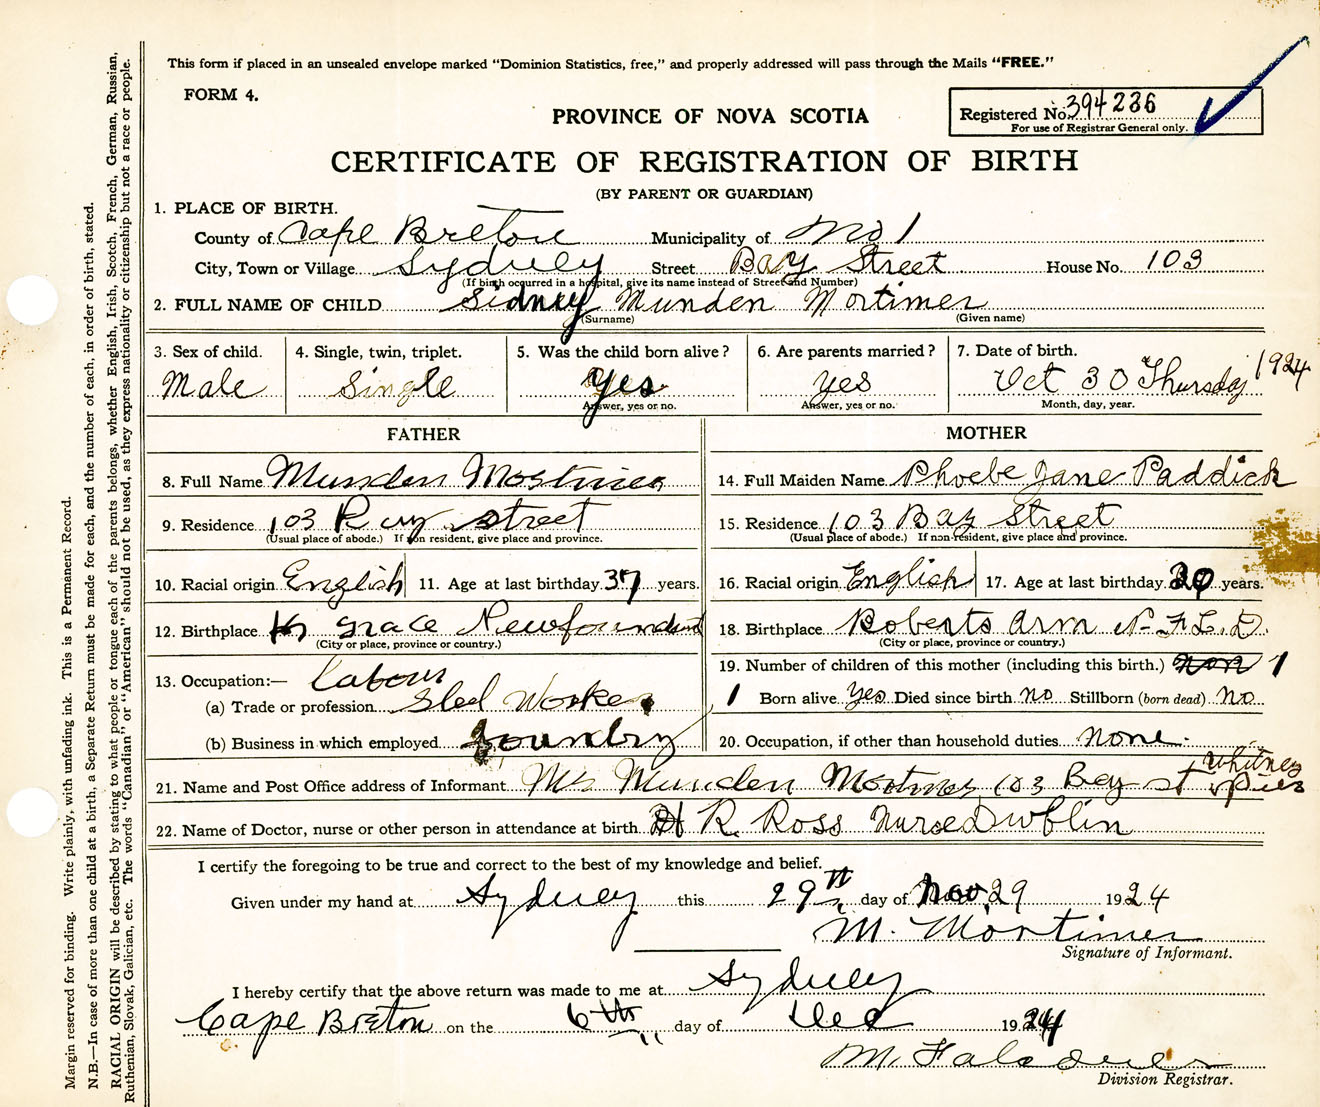 This form if placed in an unsealed envelope marked "Dominion Statistics, free," and properly addressed will pass through the Mails "FREE."
FORM 4.
Registered No. 394236
For use of Registrar General only.
PROVINCE OF NOVA SCOTIA
CERTIFICATE OF REGISTRATION OF BIRTH
(BY PARENT OR GUARDIAN)
1. PLACE OF BIRTH.
County of Cape Breton Municipality of No 1
City, Town or Village Sydney Street Bay Street House No. 103
(If birth occurred in a hospital, give its name instead of Street and Number)
2. FULL NAME OF CHILD Sidney Munden Mortimer
(Surname) (Given name)
3. Sex of child. 4. Single, twin, triplet. 5. Was the child born alive? 6. Are parents married? 7. Date of birth.
Male Single Yes yes Oct 30 Thursday 1924
Answer, yes or no. Answer, yes or no. Month, day, year.
FATHER MOTHER
8. Full Name Munden Mortimer 14. Full Maiden Name Phoebe Jane Paddick
9. Residence 103 Bay street 15. Residence 103 Bay Street
(Usual place of abode.) If non resident, give place and province. (Usual place of abode.) If non-resident, give place and province.
10. Racial origin English 11. Age at last birthday 37 years. 16. Racial origin English 17. Age at last birthday 30 years.
12. Birthplace Hr Grace Newfoundland 18. Birthplace Roberts Arm N.F.L.D.
(City or place, province or country.) (City or place, province or country.)
13. Occupation:— Labour 19. Number of children of this mother (including this birth.) non 1
(a) Trade or profession Steel Worker 1 Born alive yes Died since birth no Stillborn (born dead) no
(b) Business in which employed foundry 20. Occupation, if other than household duties none.
21. Name and Post Office address of Informant Mr Munden Mortimer 103 Bay st Whitney Pier
22. Name of Doctor, nurse or other person in attendance at birth R. Ross Nurse Dwblin
I certify the foregoing to be true and correct to the best of my knowledge and belief.
Given under my hand at Sydney this 29th day of Nov. 29 1924
M. Mortimer
Signature of Informant.
I hereby certify that the above return was made to me at Sydney
Cape Breton on the 6th day of Dec 1924
M.
Division Registrar.
Margin reserved for binding. Write plainly, with unfading ink. This is a Permanent Record.
N.B.—In case of more than one child at a birth, a Separate Return must be made for each, and the number of each, in order of birth, stated.
RACIAL ORIGIN will be described by stating to what people or tongue each of the parents belongs, whether English, Irish, Scotch, French, German, Russian,
Ruthenian, Slovak, Galician, etc. The words "Canadian" or "American" should not be used, as they express nationality or citizenship but not a race or people.